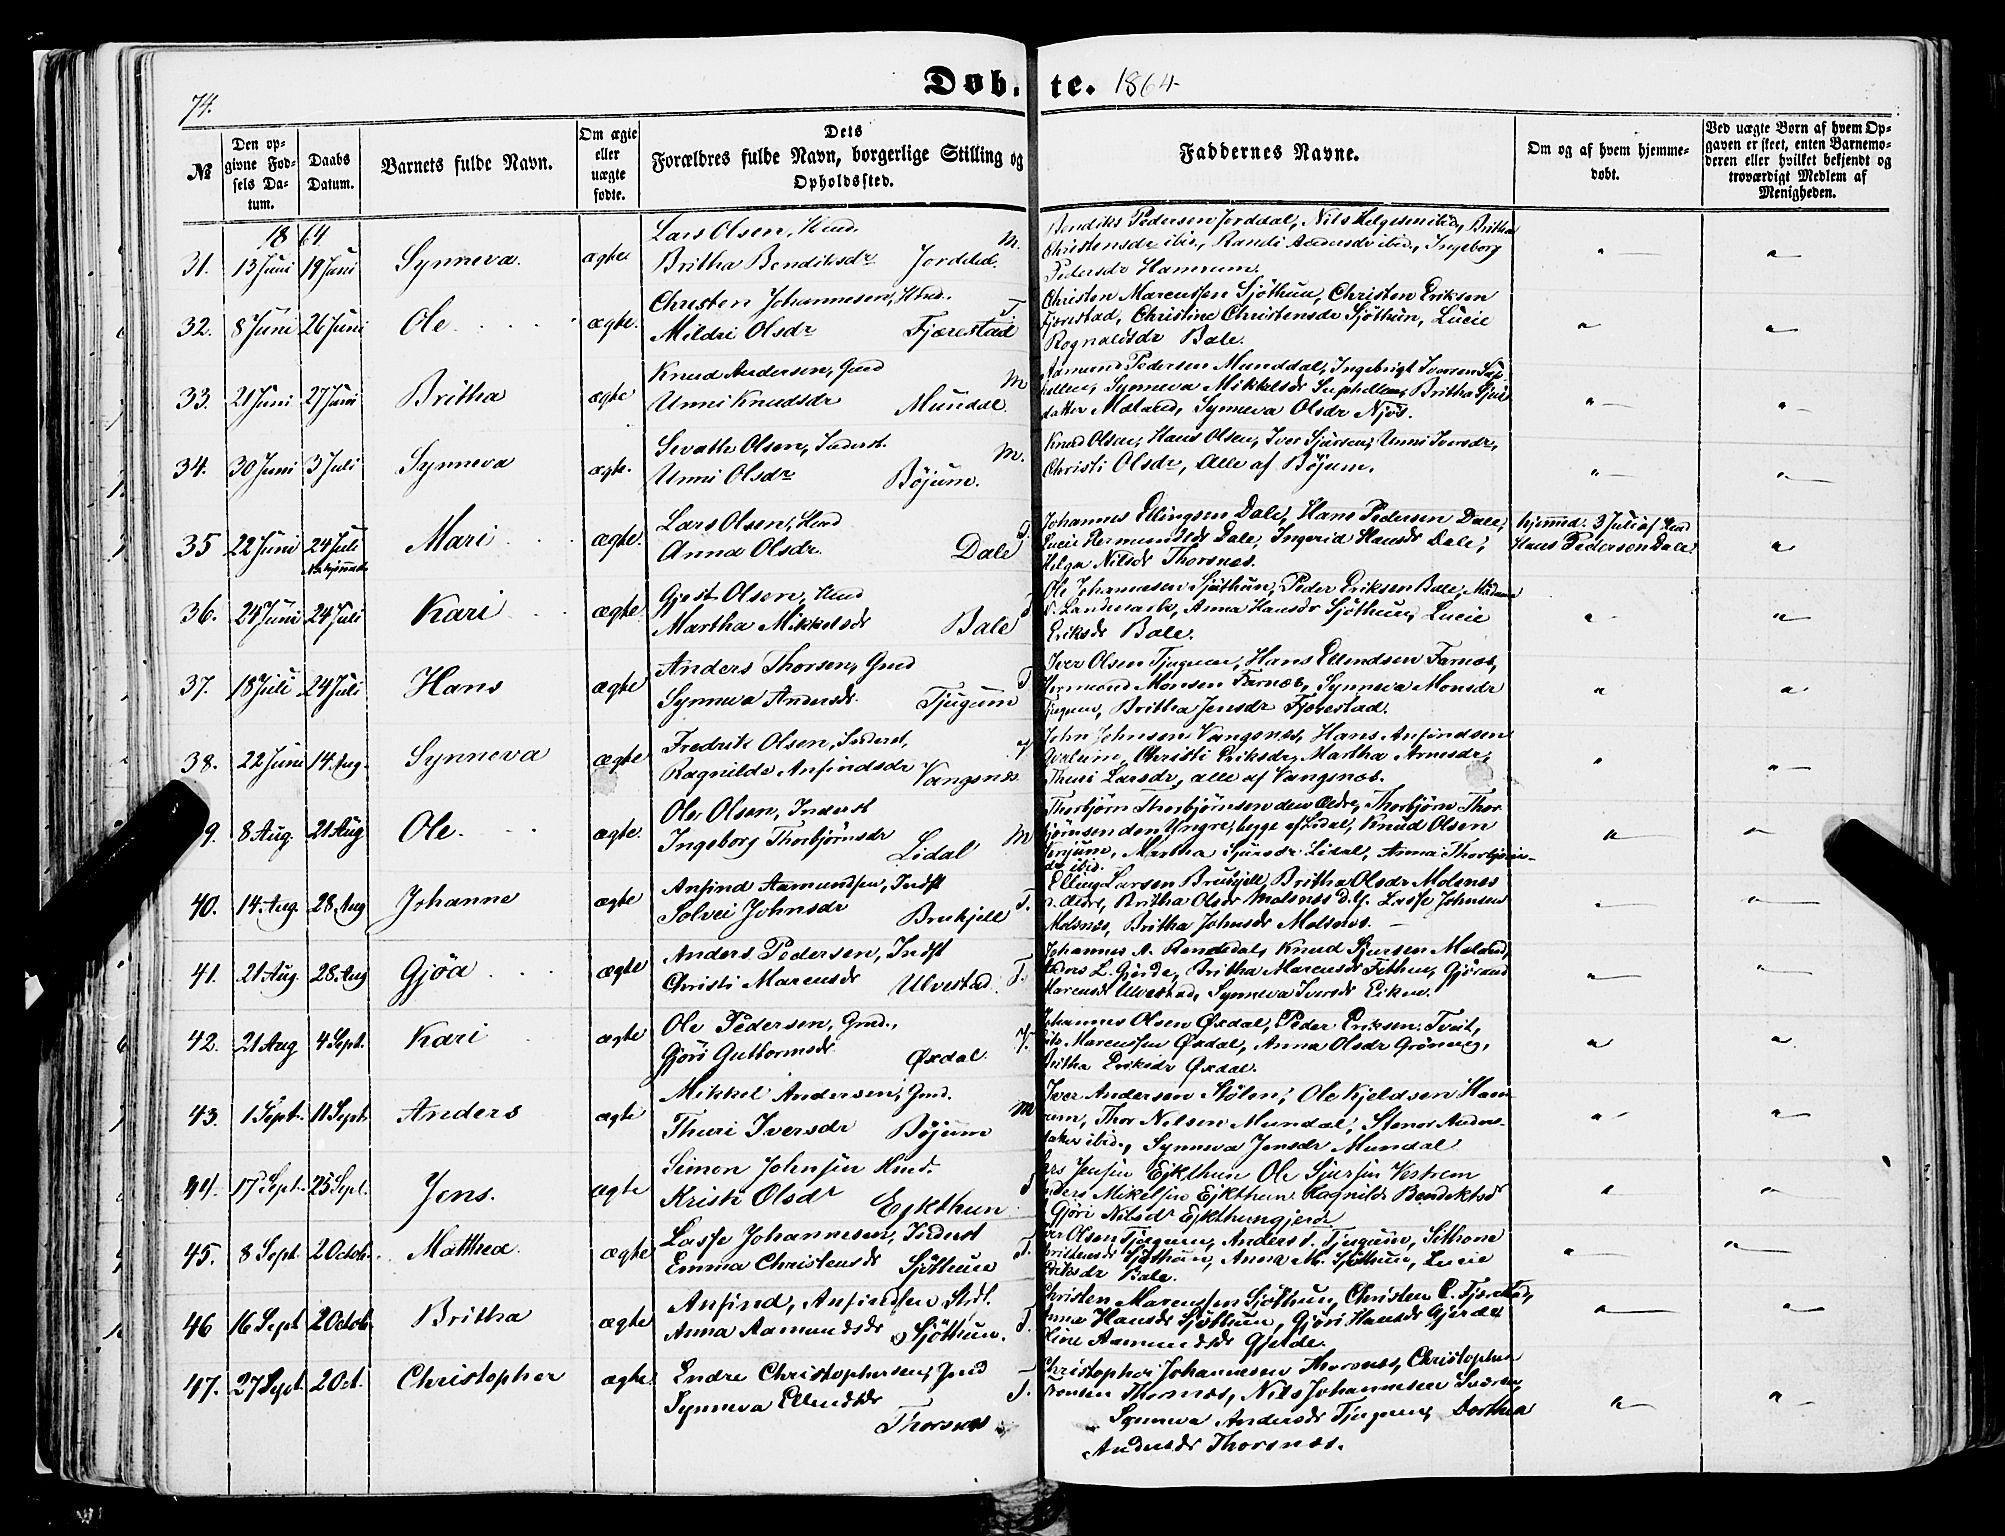 74.
Døbte. 1864
№
Den opgivne Fødsels Datum.
Daabs Datum.
Barnets fulde Navn.
Om ægte eller uægte fødte.
Dets Forældres fulde Navn, borgerlige Stilling og Opholdssted.
Faddernes Navne.
Om og af hvem hjemmedøbt.
Ved uægte Børn af hvem Opgaven er skeet, enten Barnemoderen eller hvilket bekjendt og troværdigt Medlem af Menigheden.
1864
31. 13 Juni 19 Juni Synneva. ægte
Lars Olsen, Hmd. M.
Britha Bendiksdr Jorddal.
Bendiks Pedersen Jorddal, Nils Helgesen ibid, Britha
Christensdr ibid., Randi Andersdr ibid., Ingeborg
Pedersdr Hamrum.
32. 8 Juni 26 Juni Ole ægte.
Christen Johannesen, Hmd. T.
Mildri Olsdr Fjærestad
Christen Marcussen Sjøthun, Christen Eriksen
Fjærestad, Christine Christensdr Sjøthun, Lucie
Rognaldsdr Bale.
33. 21 Juni 27 Juni Britha ægte
Knud Andersen, Gmd M
Unni Knudsdr Mundal.
Aamund Pedersen Munddal, Ingebrigt Iversen Sup
hellen, Synneva Mikkelsdr Suphellen, Britha Sjurs
datter Mæland, Synneva Olsdr Njøs.
34. 30 Juni 3 Juli Synneva ægte.
Sevath Olsen, Inderst. M.
Unni Olsdr Bøjum.
Knud Olsen, Hans Olsen, Iver Sjursen, Unni Iversdr,
Christi Olsdr, Alle af Bøjum.
35 22 Juni 24 Juli Mari ægte.
Lars Olsen, Hmd T
Anna Olsdr. Dale
Johannes Ellingsen Dale, Hans Pedersen Dale,
Lucie Hermundsdr Dale, Ingerid Hansdr Dale,
Helga Nilsdr Thorsnes.
hjemmed. 3 Juli af Hmd
Hans Pedersen Dale.
36. 24 Juni 24 Juli Kari ægte
Gjest Olsen, Hmd T
Martha Mikkelsdr Bale
Ole Johannesen Sjøthun, Peder Eriksen Bale, Madame
Landmark, Anna Hansdr Sjøthun, Lucie
Eriksdr Bale.
37. 18 Juli 24 Juli Hans ægte
Anders Thorsen, Gmd T
Synneva Andersdr. Tjugum
Iver Olsen Tjugum, Hans Ellendsen Farnæs,
Hermund Monsen Farnæs, Synneva Monsdr
Tjugum, Britha Jensdr Fjærestad.
38. 22 Juni 14 Aug. Synneva ægte
Fredrik Olsen, Inderst,
Ragnilde Anfindsdr Vangsnæs
John Johnsen Vangsnes, Hans Anfindsen
Christi Eriksdr, Martha Arnesdr,
Thuri Larsdr, alle af Vangsnæs.
9. 8 Aug. 21 Aug Ole. ægte.
Ole Olsen, Inderst
Ingeborg Thorbjørnsdr Lidal M
Thorbjørn Thorbjørnsen den Ældre, Thorbjørn Thor
bjørnsen den Yngre, begge af Lidal, Knud Olsen
Martha Sjursdr Lidal, Anna Thorbjørns-
dr ibid.
40. 14 Aug. 28 Aug Johanne ægte
Anfind Aamundsen, Indst
Solvei Johnsdr Brekjell T.
Elling Larsen Brekjell, Britha Olsdr Molsnes
d. Ældre, Britha Olsdr Molsnes d. Y. Lasse Johnsen
Molsnæs, Britha Johnsdr Molsnæs.
41. 21 Aug. 28 Aug Gjøa ægte
Anders Pedersen, Indst
Christi Marcusdr Ulvestad. T.
Johannes A. Romedal, Knud Sjursen Mæland,
Anders L. Gjerde, Britha Marcusdr Fethun, Gjøa
Marcusdr Ulvestad, Synneva Iversdr Eiken.
42. 21 Aug 4 Sept. Kari ægte
Ole Pedersen, Gmd.,
Gjøri Guttormsdr Øxdal.
Johannes Olsen Øxdal, Peder Eriksen Tveit,
Nils Marcussen Øxdal, Anna Olsdr Grønning,
Britha Eriksdr Øxdal.
43. 1 Sept. 11 Sept. Anders ægte
Mikkel Andersen, Gmd. M
Thuri Iversdr Bøjum
Iver Andersen Stølen, Ole Kjeldsen Ham
rum, Thor Nilsen Mundal, Stenor Anders-
datter ibid., Synneva Jensdr Mundal
44. 17 Sept. 25 Sept. Jens. ægte
Simon Johnsen Hmd.
Kristi Olsdr Ejkthun
Lars Jensen Ejkthun Ole Sjursen Vestrem
Anders Mikelsen Ejkthun Ragnilde Bendiktsdr
Gjøri Nilsdr Ejkthungjerde
45. 8 Sept. 2 Octob. Matthea ægte
Lasse Johannesen, Inderst
Emma Christensdr Sjøthun T.
Iver Olsen Tjugum, Anders T. Tjugum, Sithone
Christensdr Sjøthun, Anna M. Sjøthun, Lucie
Eriksdr Bale.
46 16 Sept 2 Octob. Britha ægte
Anfind, Anfindsen Strdl.
Anna Aamundsdr Sjøthun. T.
Christen Marcussen Sjøthun, Christen E. Fjærestad,
Anna Hansdr Sjøthun, Gjøri Hansdr Gjerde
Oline Aamundsdr Gjerde.
47. 27 Sept 2 Oct. Christopher ægte.
Endre Christophersen, Gmd T.
Synneva Ellendsdr
Thorsnæs
Christopher Johannesen Thorsnes, Christopher
Thorsnæs, Nils Johannesen
Synneva Andersdr Tjugum, Dorthea
Andersdr Thorsnæs.